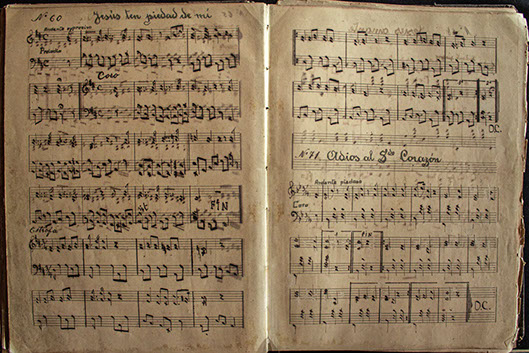 Nº 60 Jesús ten piedad de mi
Andante expresivo
Preludio
Coro
FIN
Estrofa
D.C.
Nº 71 Adios al Sdo Corazón
Andante piadoso
Coro
1 FIN
D.C.